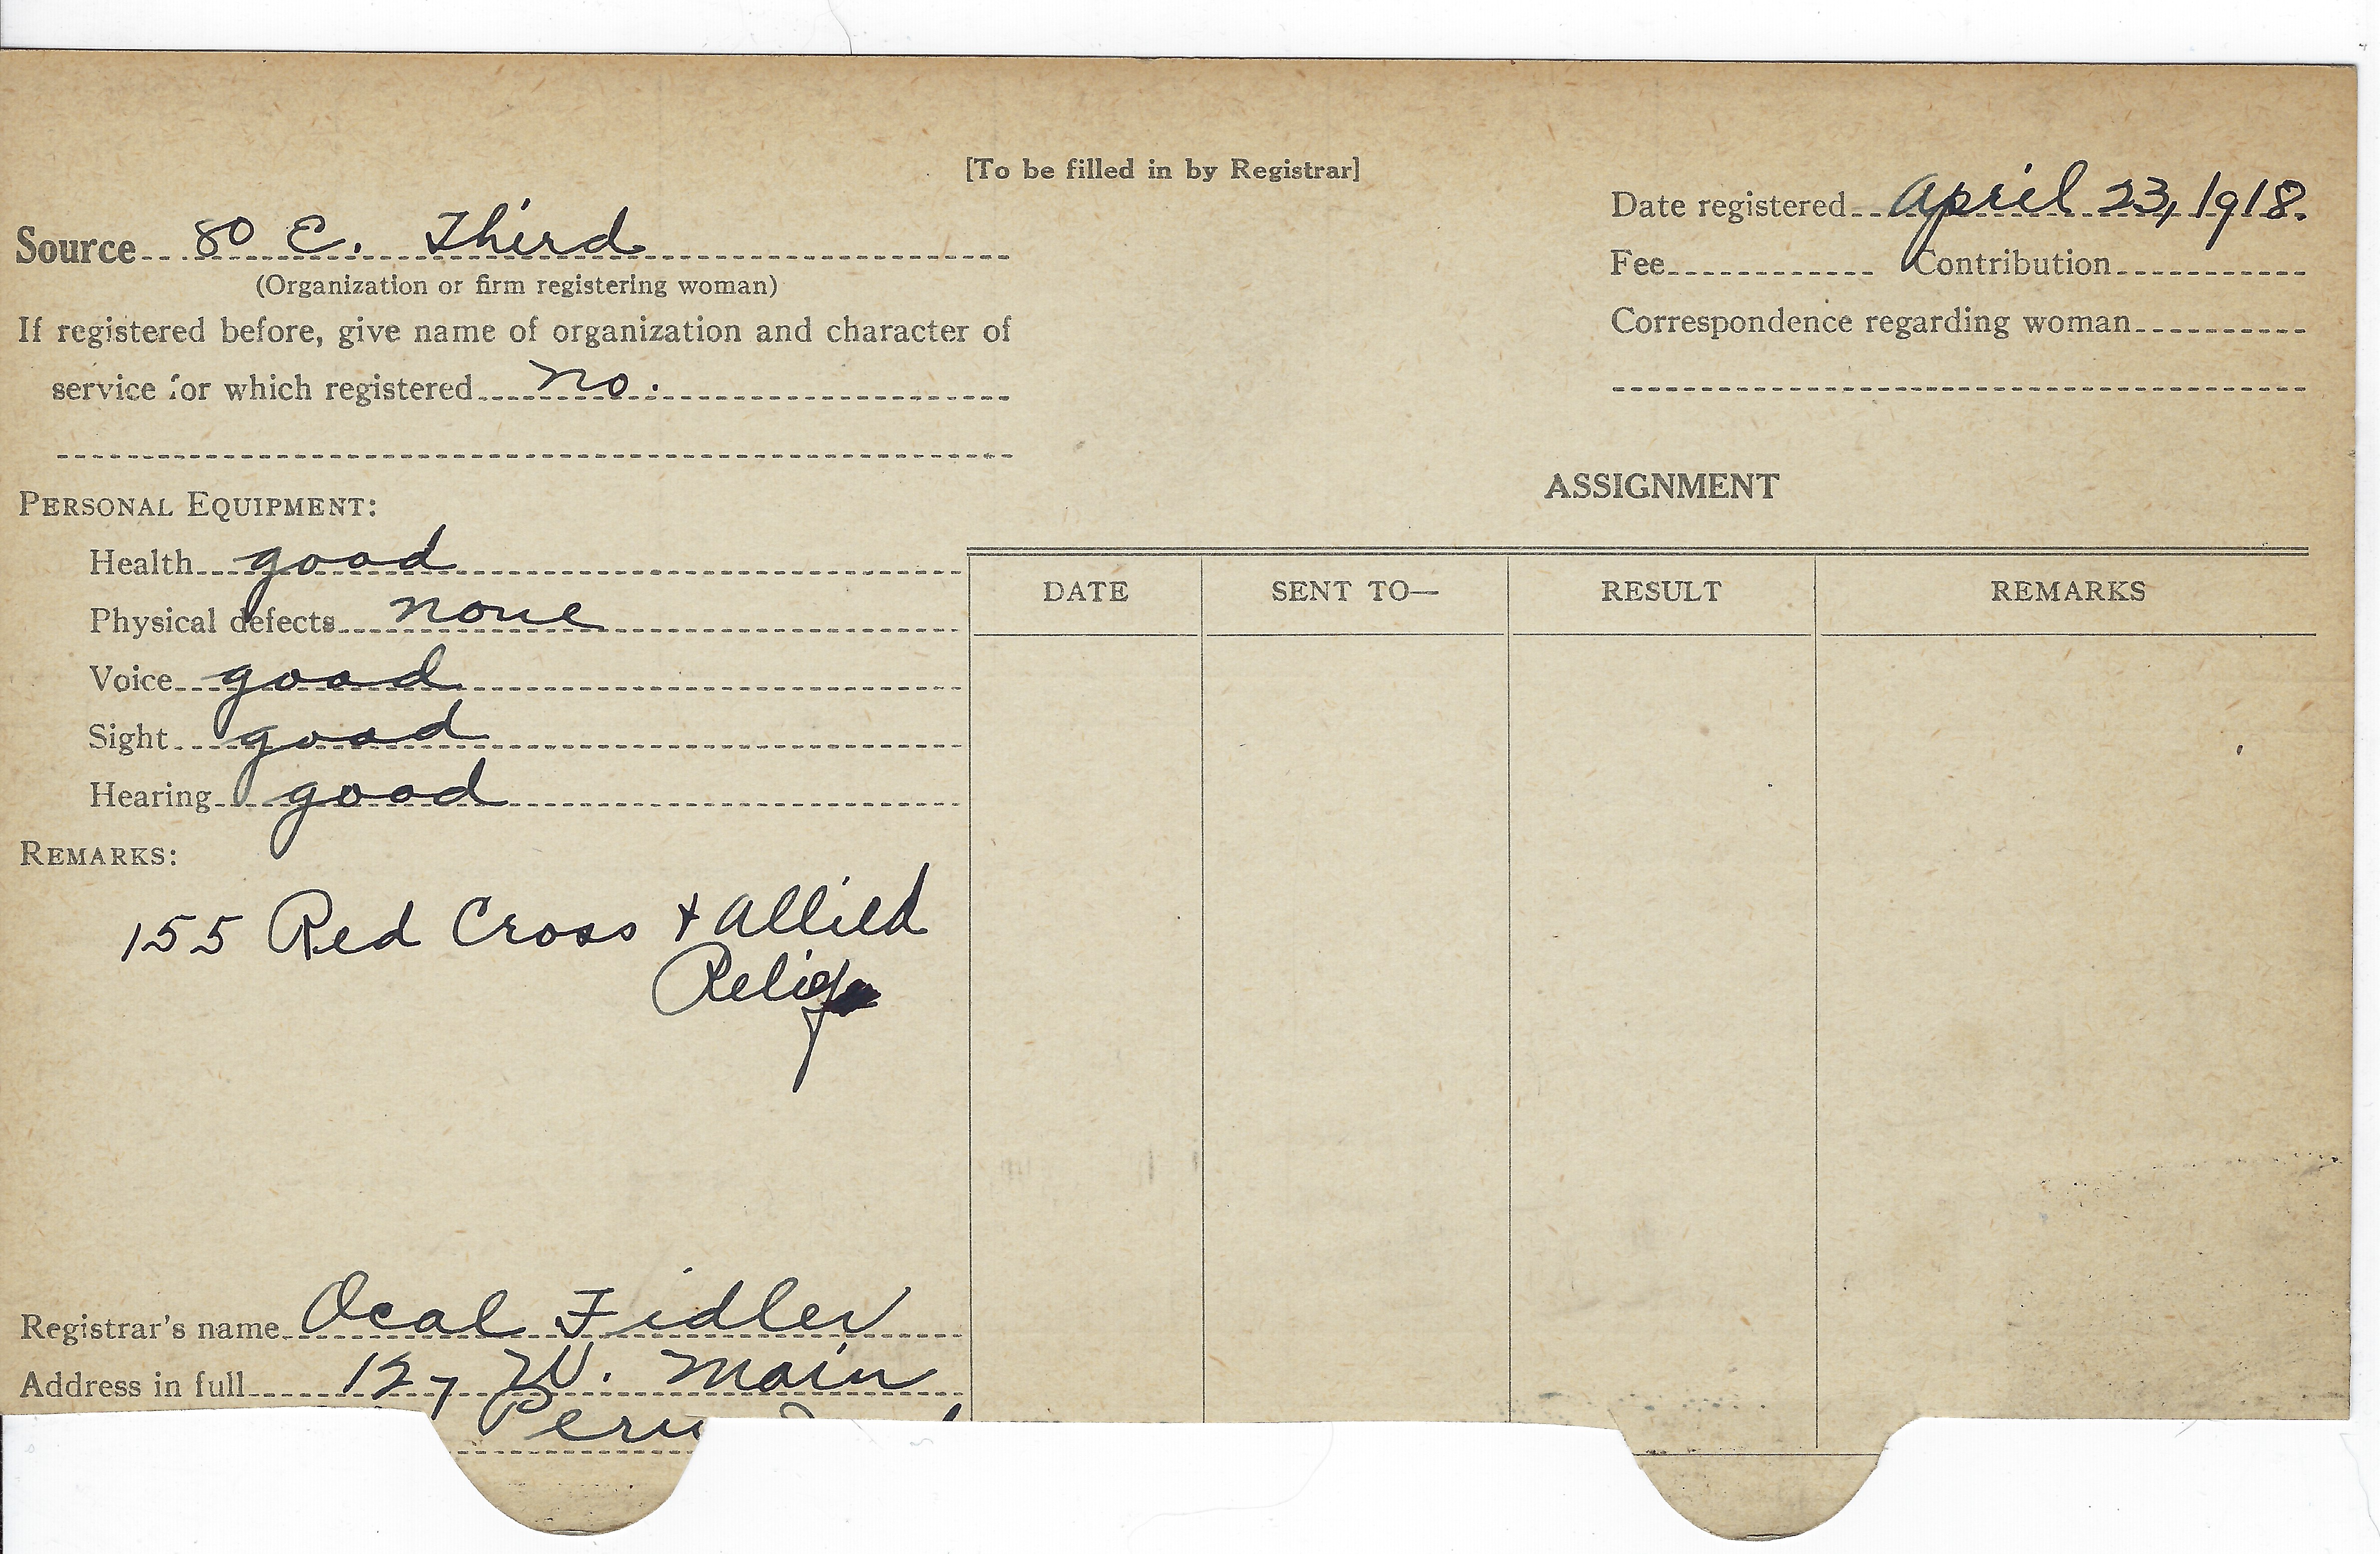 [To be filled in by Registrar]
Source 80 E. Third
(Organization or firm registering woman)
If registered before, give name of organization and character of
service for which registered no.
Date registered April 23, 1918.
Fee Contribution
Correspondence regarding woman
PERSONAL EQUIPMENT:
Health good
Physical defects none
Voice good
Sight good
Hearing good
REMARKS:
155 Red Cross + Allied
Relief
ASSIGNMENT
DATE SENT TO— RESULT REMARKS
Registrar's name Ocal Fidler
Address in full 127 W. Main
Peru